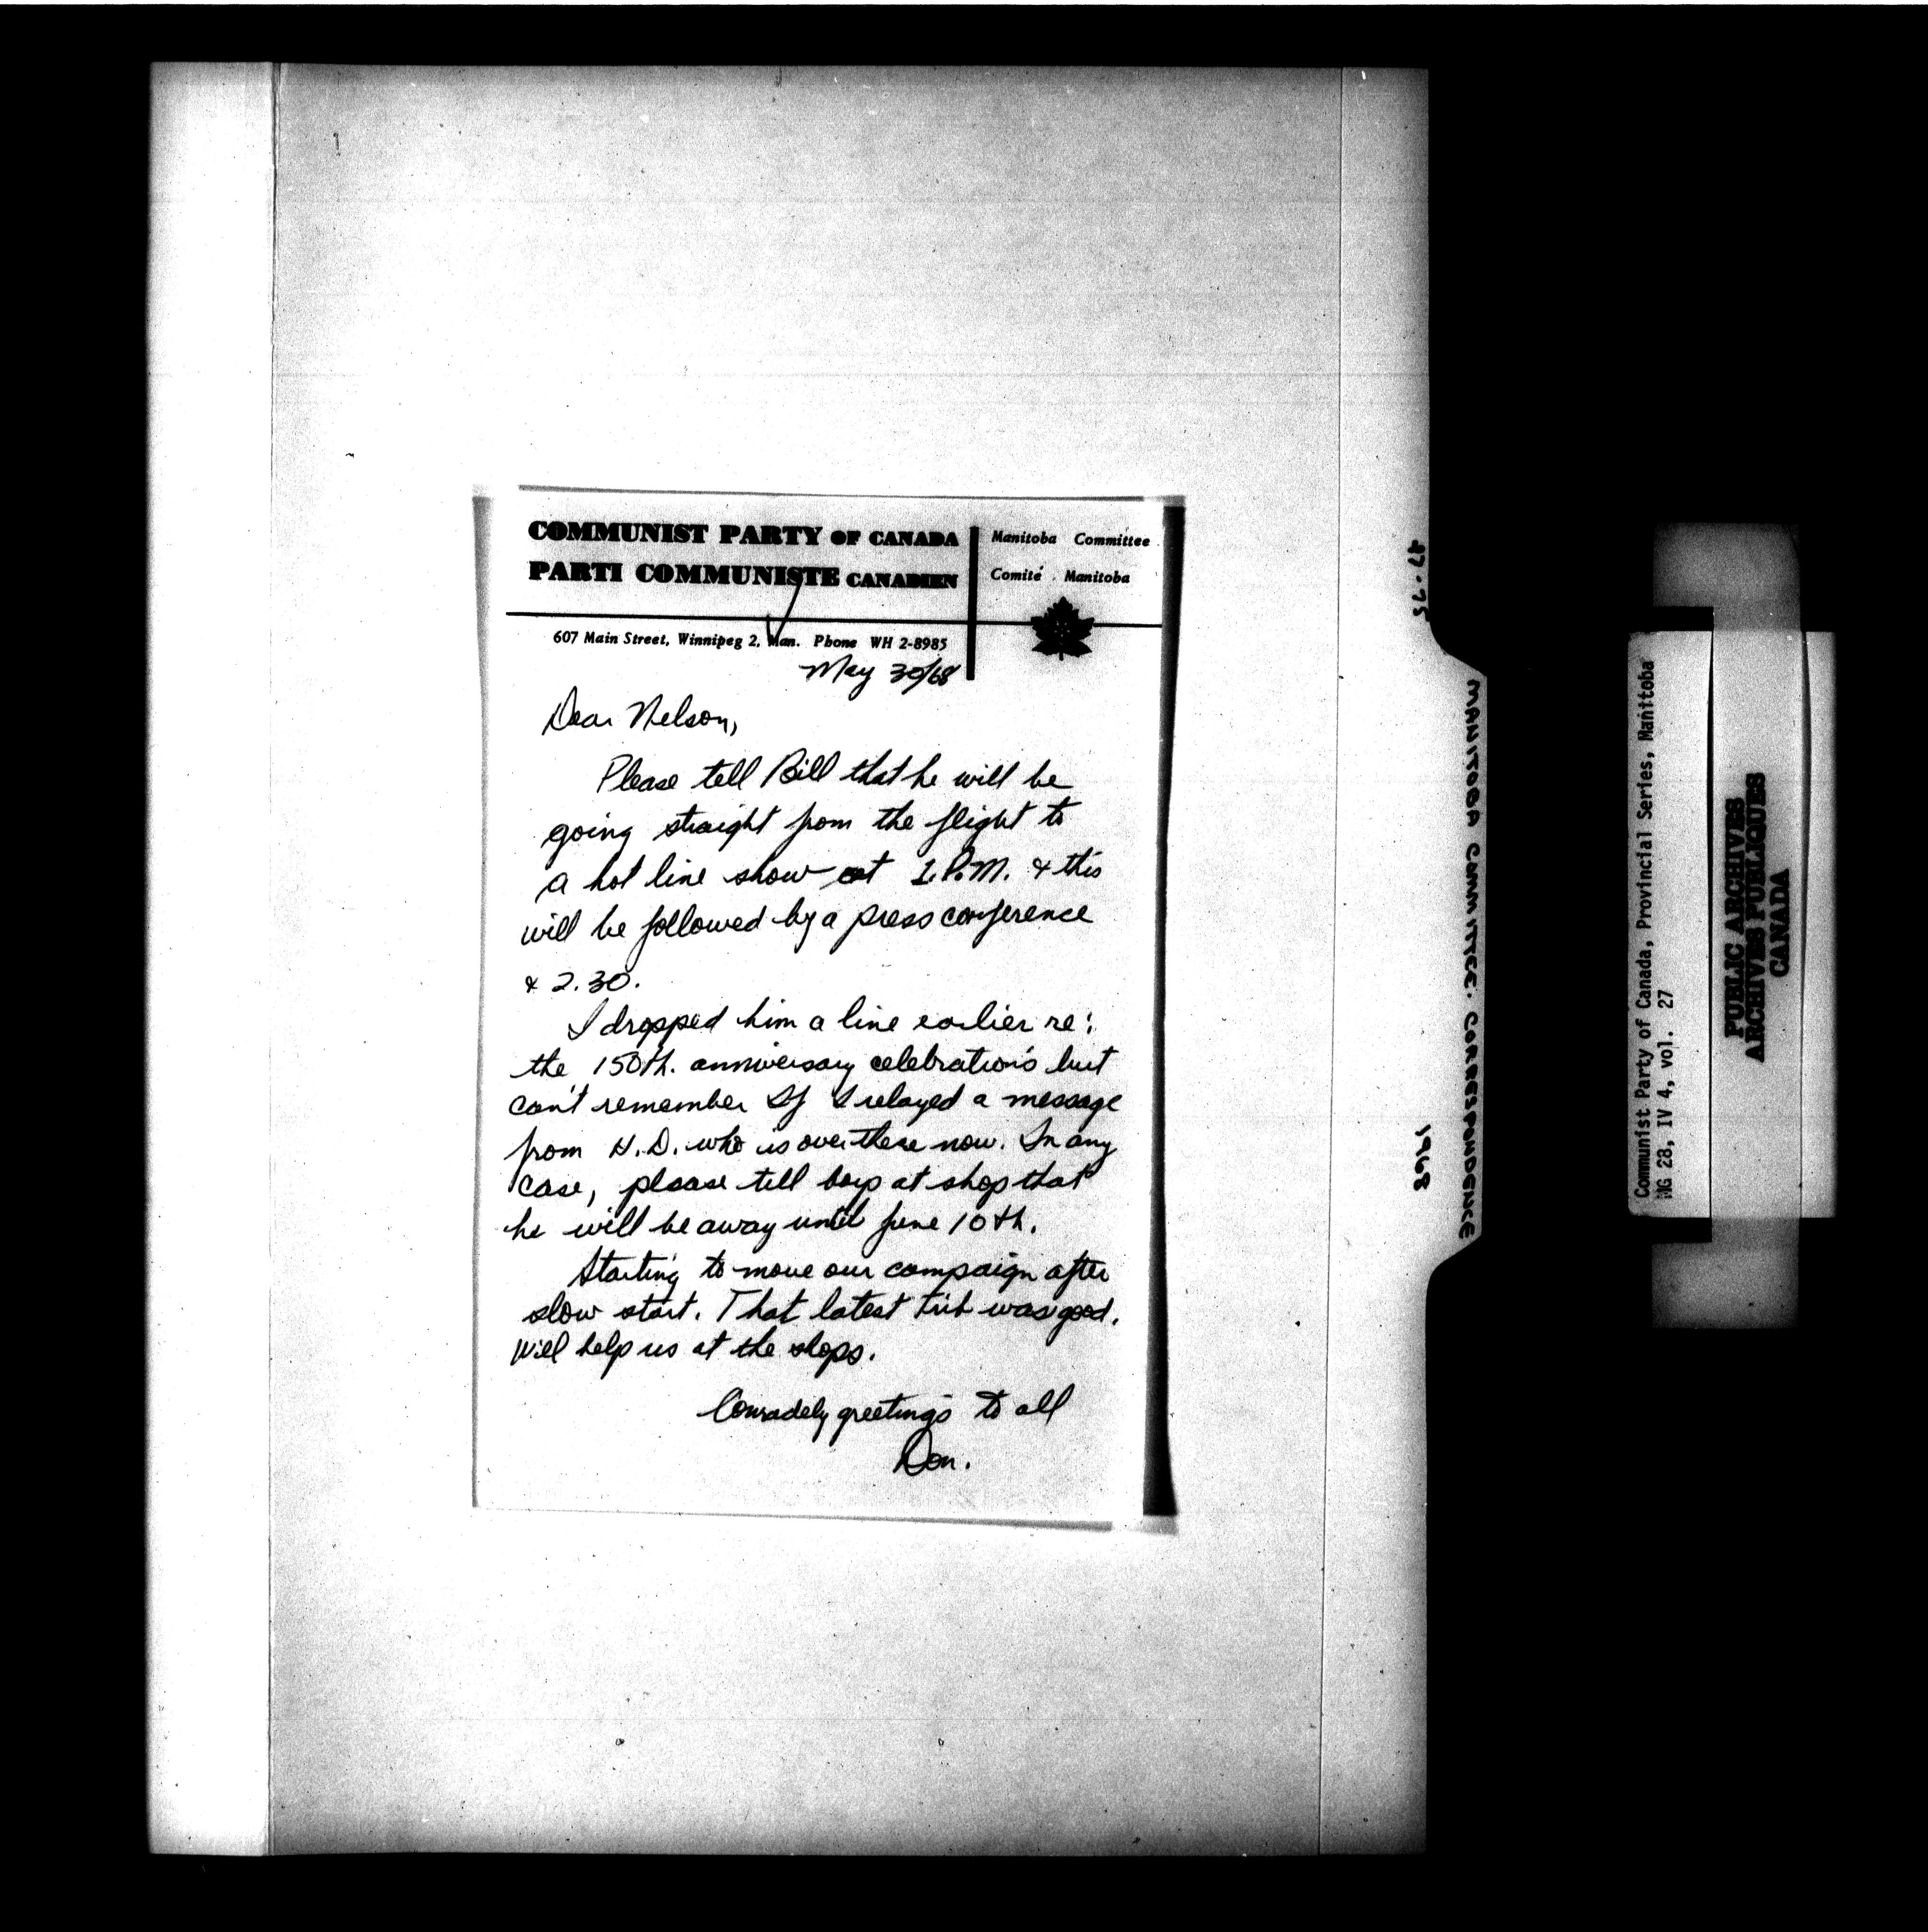 COMMUNIST PARTY OF CANADA
PARTI COMMUNISTE CANADIEN
Manitoba Committee
Comité Manitoba
607 Main Street, Winnipeg 2, Man. Phone WH 2-8985
May 30/68
Dear Nelson,
Please tell Bill that he will be
going straight from the flight to
a hot line show at 1.P.M. & this
will be followed by a press conference
& 2.30.
I dropped him a line earlier re:
the 150th. anniversary celebrations but
can't remember if I relayed a message
from H.D. who is over there now. In any
case, please tell boys at shop that
he will be away until June 10th.
Starting to move our campaign after
slow start. That latest Trib was good.
Will help us at the shops.
Comradely greetings to all
Don.
47-25
MANITOBA COMMITTEE. CORRESPONDENCE
1968
Communist Party of Canada, Provincial Series, Manitoba
MG 28, IV 4, vol. 27
PUBLIC ARCHIVES
ARCHIVES PUBLIQUES
CANADA